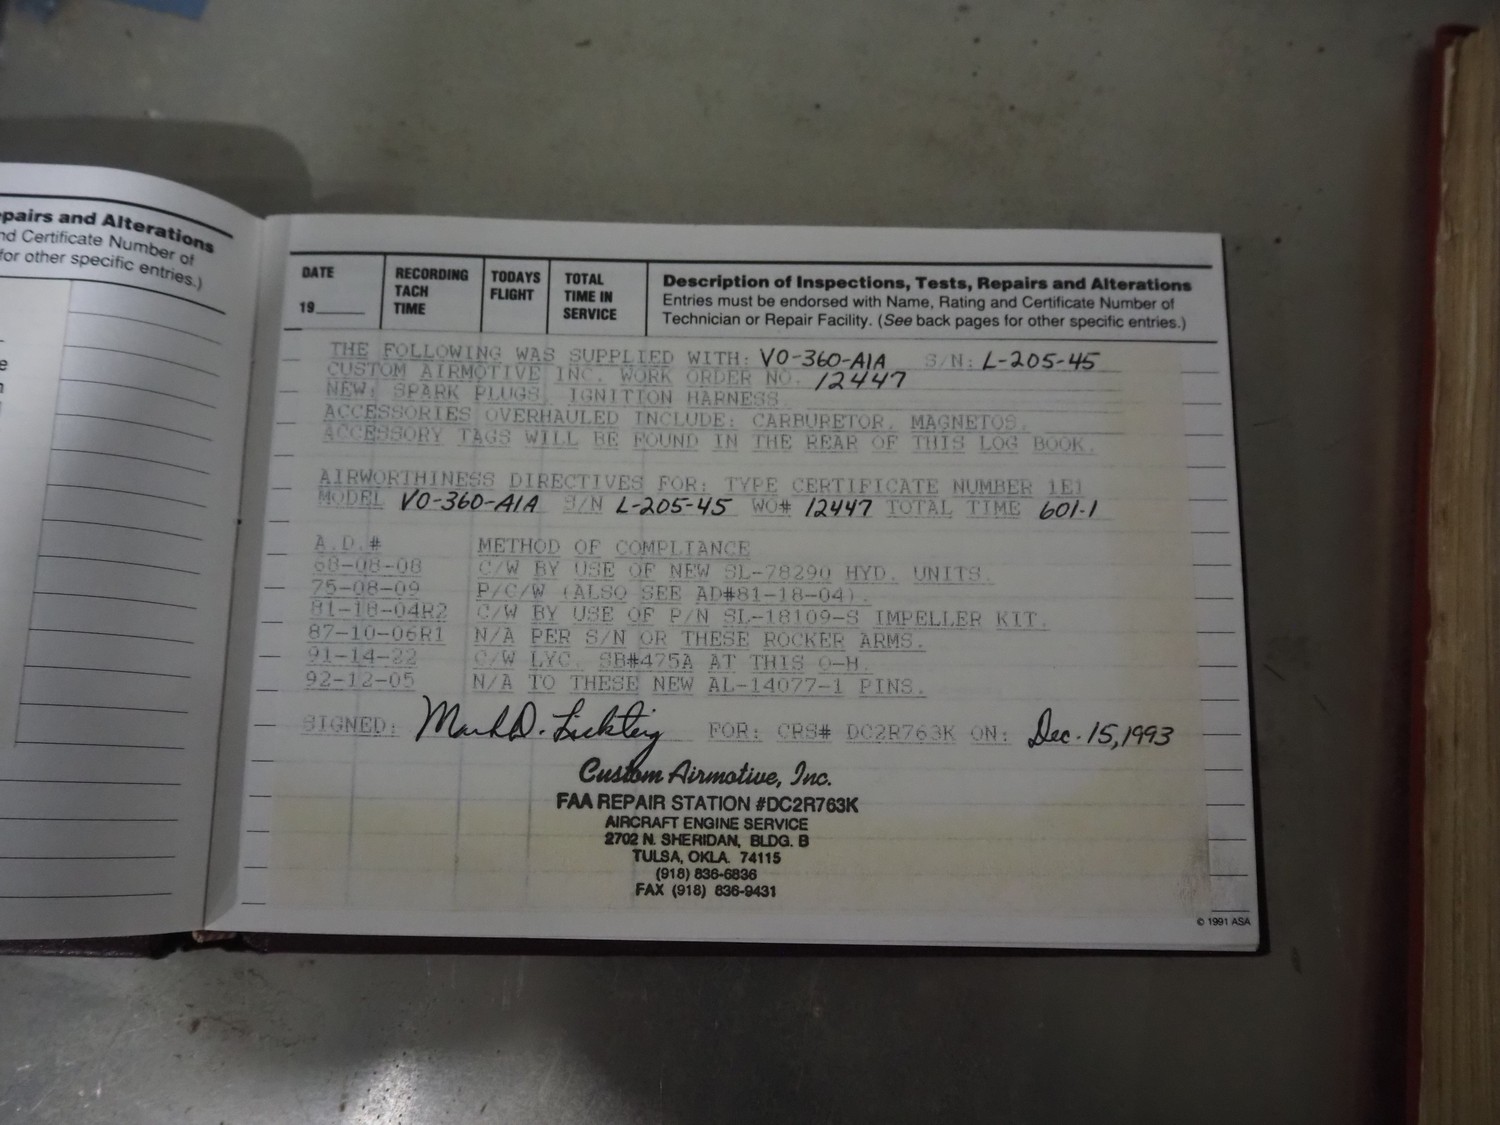 pairs and Alterations
nd Certificate Number of
for other specific entries.)
DATE
19
RECORDING
TACH
TIME
TODAYS
FLIGHT
TOTAL
TIME IN
SERVICE
Description of Inspections, Tests, Repairs and Alterations
Entries must be endorsed with Name, Rating and Certificate Number of
Technician or Repair Facility. (See back pages for other specific entries.)
THE FOLLOWING WAS SUPPLIED WITH: VO-360-A1A S/N: L-205-45
CUSTOM AIRMOTIVE INC. WORK ORDER NO. 12447
NEW: SPARK PLUGS, IGNITION HARNESS
ACCESSORIES OVERHAULED INCLUDE: CARBURETOR, MAGNETOS.
ACCESSORY TAGS WILL BE FOUND IN THE REAR OF THIS LOG BOOK.
AIRWORTHINESS DIRECTIVES FOR: TYPE CERTIFICATE NUMBER 1E1
MODEL VO-360-A1A S/N L-205-45 WO# 12447 TOTAL TIME 601.1
A.D.# METHOD OF COMPLIANCE
68-08-08 C/W BY USE OF NEW SL-78290 HYD. UNITS.
75-08-09 P/C/W (ALSO SEE AD#81-18-04).
81-18-04R2 C/W BY USE OF P/N SL-18109-S IMPELLER KIT.
87-10-06R1 N/A PER S/N OR THESE ROCKER ARMS.
91-14-22 C/W LYC. SB#475A AT THIS O-H.
92-12-05 N/A TO THESE NEW AL-14077-1 PINS.
SIGNED: Mark D. Lickteig FOR: CRS# DC2R763K ON: Dec. 15, 1993
Custom Airmotive, Inc.
FAA REPAIR STATION #DC2R763K
AIRCRAFT ENGINE SERVICE
2702 N. SHERIDAN, BLDG. B
TULSA, OKLA. 74115
(918) 836-6836
FAX (918) 836-9431
© 1991 ASA